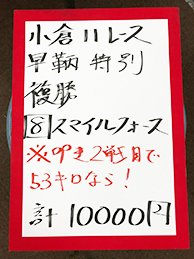 小倉11レース
早鞆特別
複勝
8スマイルフォース
※叩き2戦目で
53キロなら!
計10000円